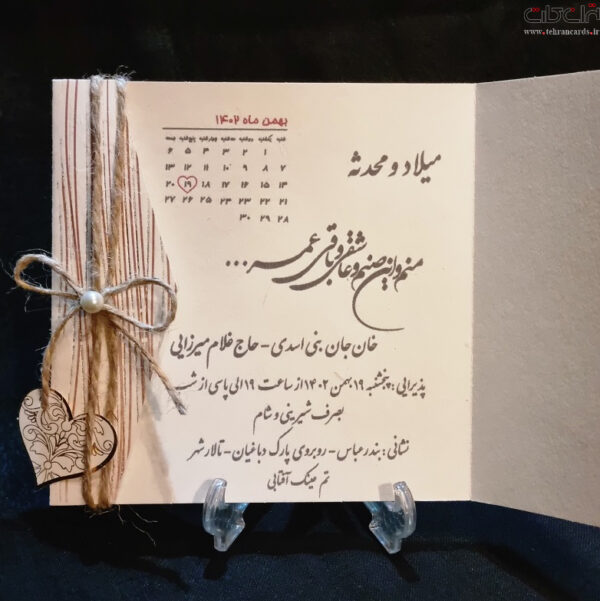 تهران کارت
www.tehrancards.ir
بهمن ماه ۱۴۰۲
شنبه یکشنبه دوشنبه سه شنبه چهارشنبه پنجشنبه جمعه
۱ ۲ ۳ ۴ ۵ ۶
۷ ۸ ۹ ۱۰ ۱۱ ۱۲ ۱۳
۱۴ ۱۵ ۱۶ ۱۷ ۱۸ ۱۹ ۲۰
۲۱ ۲۲ ۲۳ ۲۴ ۲۵ ۲۶ ۲۷
۲۸ ۲۹ ۳۰
میلاد و محدثه
منم و این صنم و عاشقی و باقی عمر ...
خان جان بنی اسدی - حاج غلام میرزایی
پذیرایی : پنجشنبه ۱۹ بهمن ۱۴۰۲ از ساعت ۱۹ الی پاسی از شب
بصرف شیرینی و شام
نشانی : بندرعباس - روبروی پارک دباغیان - تالار شهر
تم عینک آفتابی